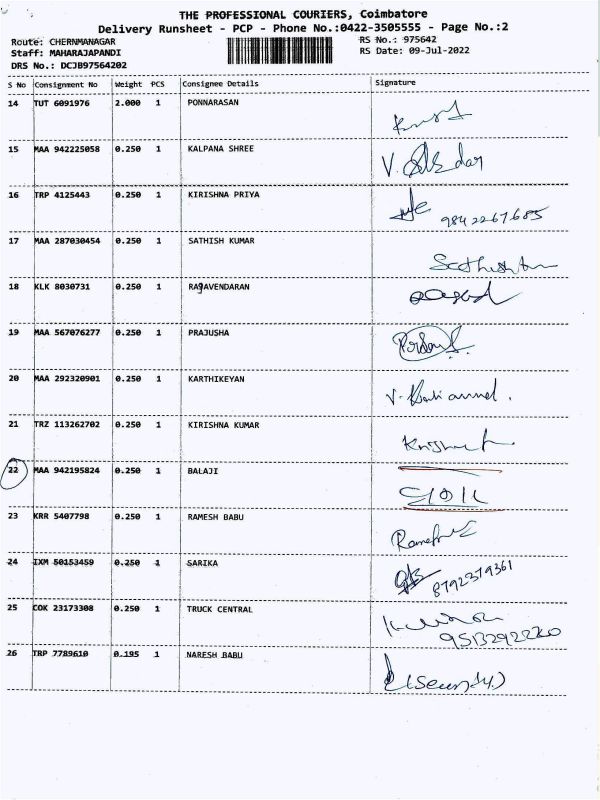 THE PROFESSIONAL COURIERS, Coimbatore
Delivery Runsheet - PCP - Phone No.:0422-3505555 - Page No.:2
Route: CHERNMANAGAR RS No.: 975642
Staff: MAHARAJAPANDI RS Date: 09-Jul-2022
DRS No.: DCJB97564202
S No Consignment No Weight PCS Consignee Details Signature
14 TUT 6091976 2.000 1 PONNARASAN
15 MAA 942225058 0.250 1 KALPANA SHREE
16 TRP 4125443 0.250 1 KIRISHNA PRIYA
9842267685
17 MAA 287030454 0.250 1 SATHISH KUMAR
18 KLK 8030731 0.250 1 RAgAVENDARAN
19 MAA 567076277 0.250 1 PRAJUSHA
20 MAA 292320901 0.250 1 KARTHIKEYAN
21 TRZ 113262702 0.250 1 KIRISHNA KUMAR
22 MAA 942195824 0.250 1 BALAJI
23 KRR 5407798 0.250 1 RAMESH BABU
24 IXM 50153459 0.250 1 SARIKA
8792379361
25 COK 23173308 0.250 1 TRUCK CENTRAL
26 TRP 7789610 0.195 1 NARESH BABU